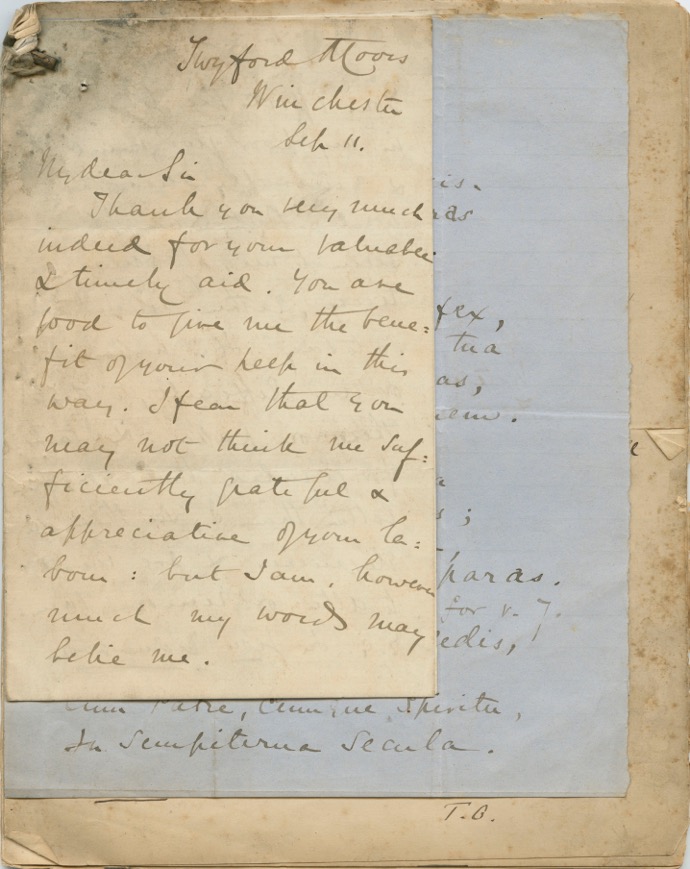 Twyford Moors
Winchester
Sep 11.
My dear Sir
Thank you very much
indeed for your valuable
& timely aid. You are
good to give me the bene=
fit of your help in this
way. I fear that you
may not think me suf=
ficiently grateful &
appreciative of your la=
bour: but I am, however
much my words may
belie me.
is.
ras
fex,
tua
as,
em.
s;
paras.
for v. 7.
edis,
Cum Patre, Cumque Spiritu,
In Sempiterna Secula.
T.B.